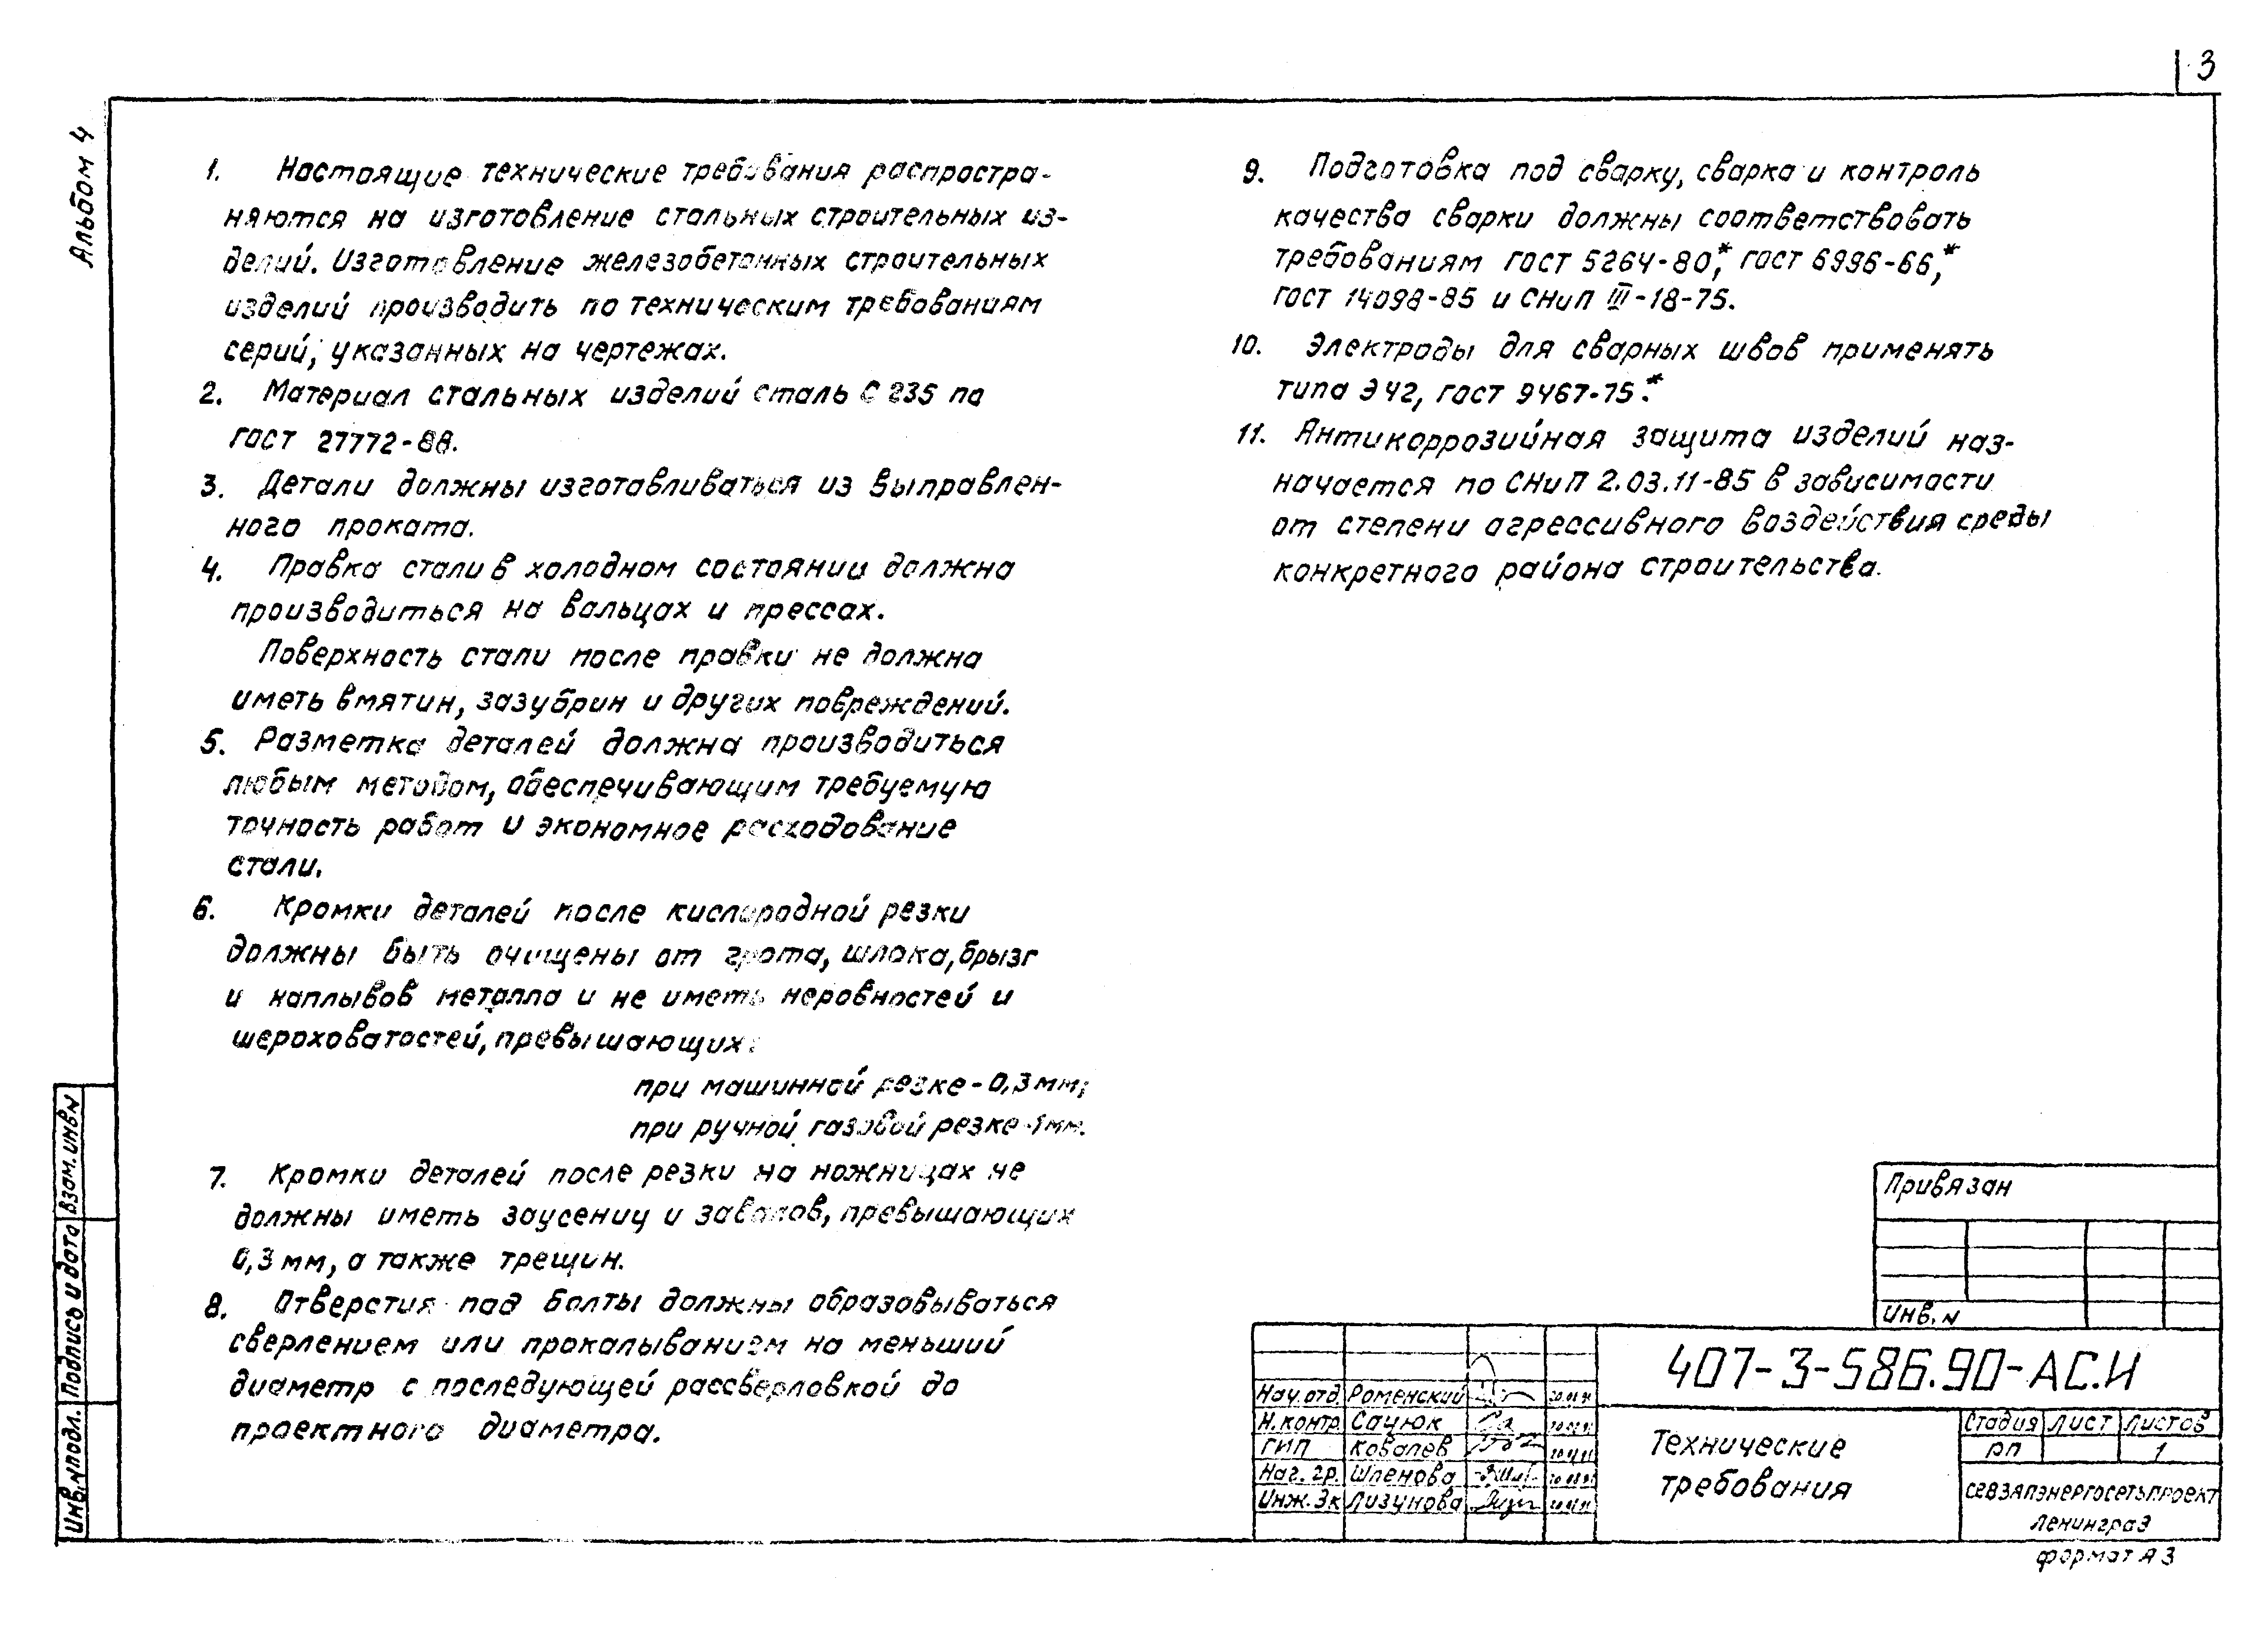 3
Альбом 4
1. Настоящие технические требования распростра-
няются на изготовление стальных строительных из-
делий. Изготовление железобетонных строительных
изделий производить по техническим требованиям
серий, указанных на чертежах.
2. Материал стальных изделий сталь С 235 по
ГОСТ 27772-88.
3. Детали должны изготавливаться из выправлен-
ного проката.
4. Правка стали в холодном состоянии должна
производиться на вальцах и прессах.
Поверхность стали после правки не должна
иметь вмятин, зазубрин и других повреждений.
5. Разметка деталей должна производиться
любым методом, обеспечивающим требуемую
точность работ и экономное расходование
стали.
6. Кромки деталей после кислородной резки
должны быть очищены от грата, шлака, брызг
и наплывов металла и не иметь неровностей и
шероховатостей, превышающих:
при машинной резке - 0,3 мм;
при ручной газовой резке - 1 мм.
7. Кромки деталей после резки на ножницах не
должны иметь заусениц и завалов, превышающих
0,3 мм, а также трещин.
8. Отверстия под болты должны образовываться
сверлением или прокалыванием на меньший
диаметр с последующей рассверловкой до
проектного диаметра.
9. Подготовка под сварку, сварка и контроль
качества сварки должны соответствовать
требованиям ГОСТ 5264-80*, ГОСТ 6996-66*,
ГОСТ 14098-85 и СНиП III-18-75.
10. Электроды для сварных швов применять
типа Э42, ГОСТ 9467-75*.
11. Антикоррозийная защита изделий наз-
начается по СНиП 2.03.11-85 в зависимости
от степени агрессивного воздействия среды
конкретного района строительства.
Взам. инв N
Подпись и дата
Инв. N подл.
Привязан
Инв. N
407-3-586.90-АС.И
Нач. отд. Роменский
Н. контр. Сацюк
ГИП Ковалев
Нач. гр. Шленова
Инж. Эк Лизунова
Технические
требования
Стадия Лист Листов
РП 1
Севзапэнергосетьпроект
Ленинград
формат А3